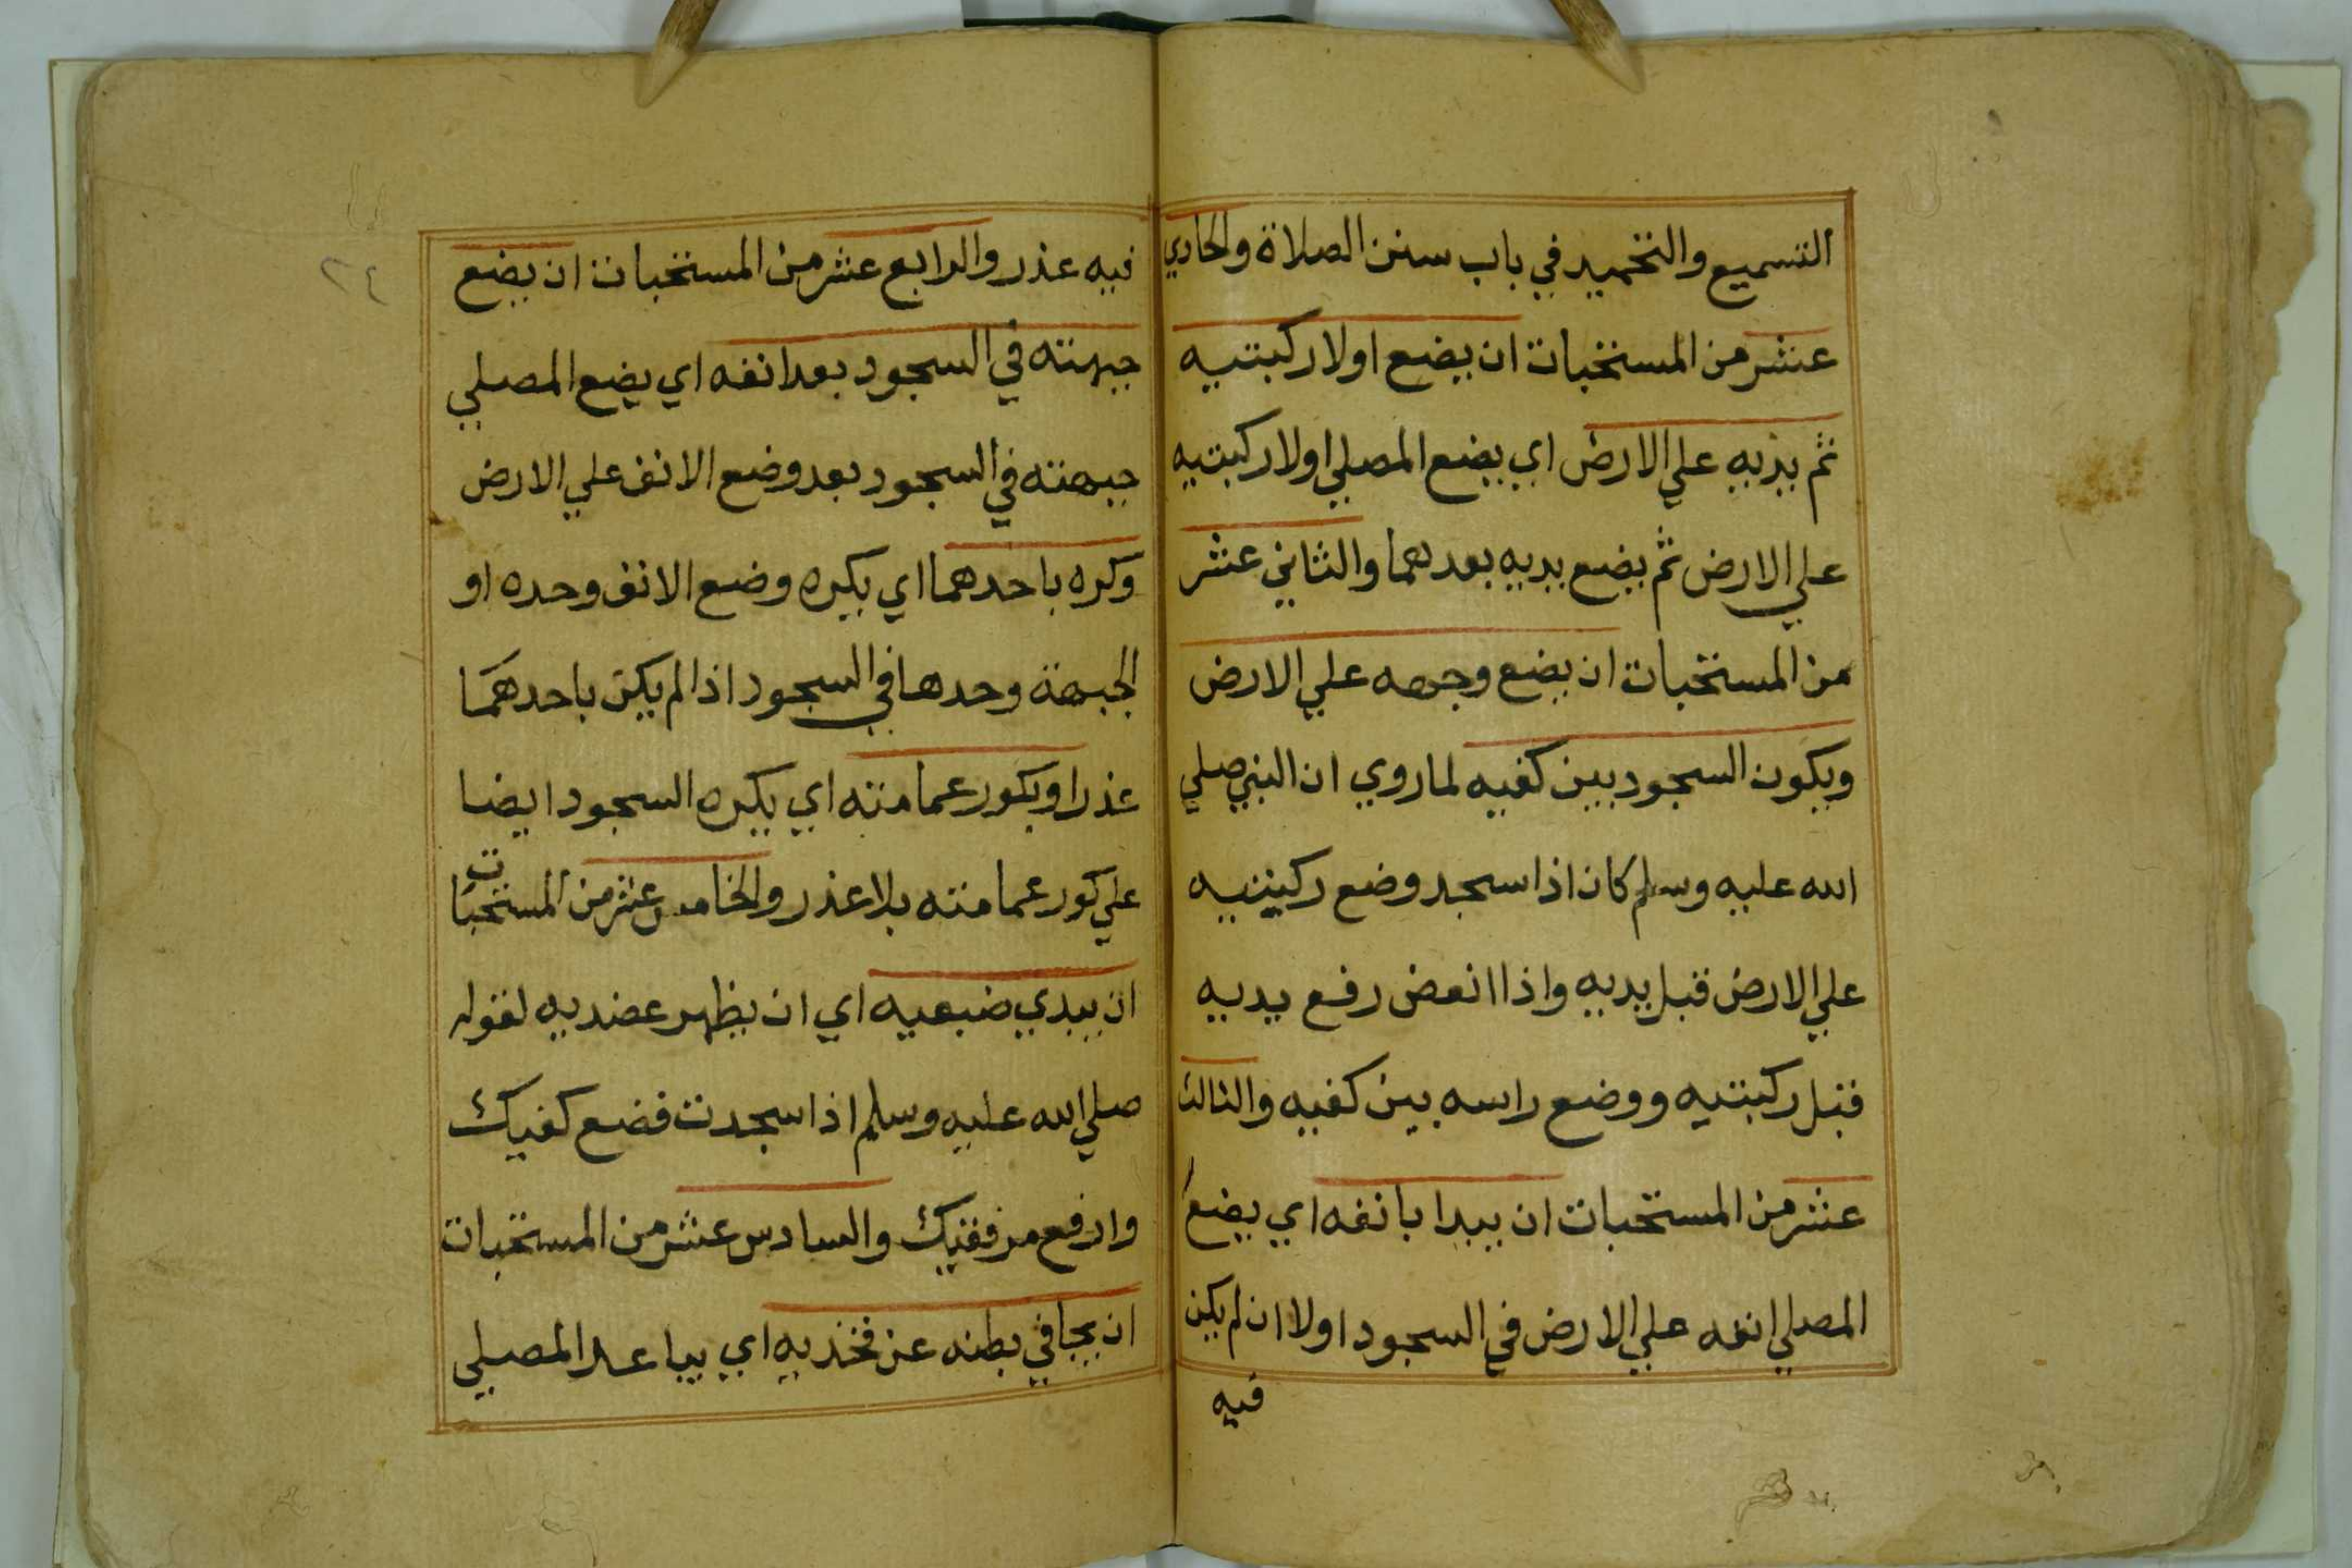 التسميع والتحميد في باب سنن الصلاة والحادي
عشر من المستحبات ان يضع اولا ركبتيه
ثم يديه علي الارض اي يضع المصلي اولا ركبتيه
علي الارض ثم يضع يديه بعدهما والثاني عشر
من المستحبات ان يضع وجهه علي الارض
ويكون السجود بين كفيه لما روي ان النبي صلي
الله عليه وسلم كان اذا سجد وضع ركبتيه
علي الارض قبل يديه واذا انهض رفع يديه
قبل ركبتيه ووضع راسه بين كفيه والثالث
عشر من المستحبات ان يبدا بانفه اي يضع
المصلي انفه علي الارض في السجود اولا ان لم يكن
فيه
٢٤
فيه عذر والرابع عشر من المستحبات ان يضع
جبهته في السجود بعد انفه اي يضع المصلي
جبهته في السجود بعد وضع الانف علي الارض
وكره باحدهما اي يكره وضع الانف وحده او
الجبهة وحدها في السجود اذا لم يكن باحدهما
عذر او بكور عمامته اي يكره السجود ايضا
علي كور عمامته بلا عذر والخامس عشر من المستحبات
ان يبدي ضبعيه اي ان يظهر عضديه لقوله
صلي الله عليه وسلم اذا سجدت فضع كفيك
وارفع مرفقيك والسادس عشر من المستحبات
ان يجافي بطنه عن فخذيه اي يباعد المصلي